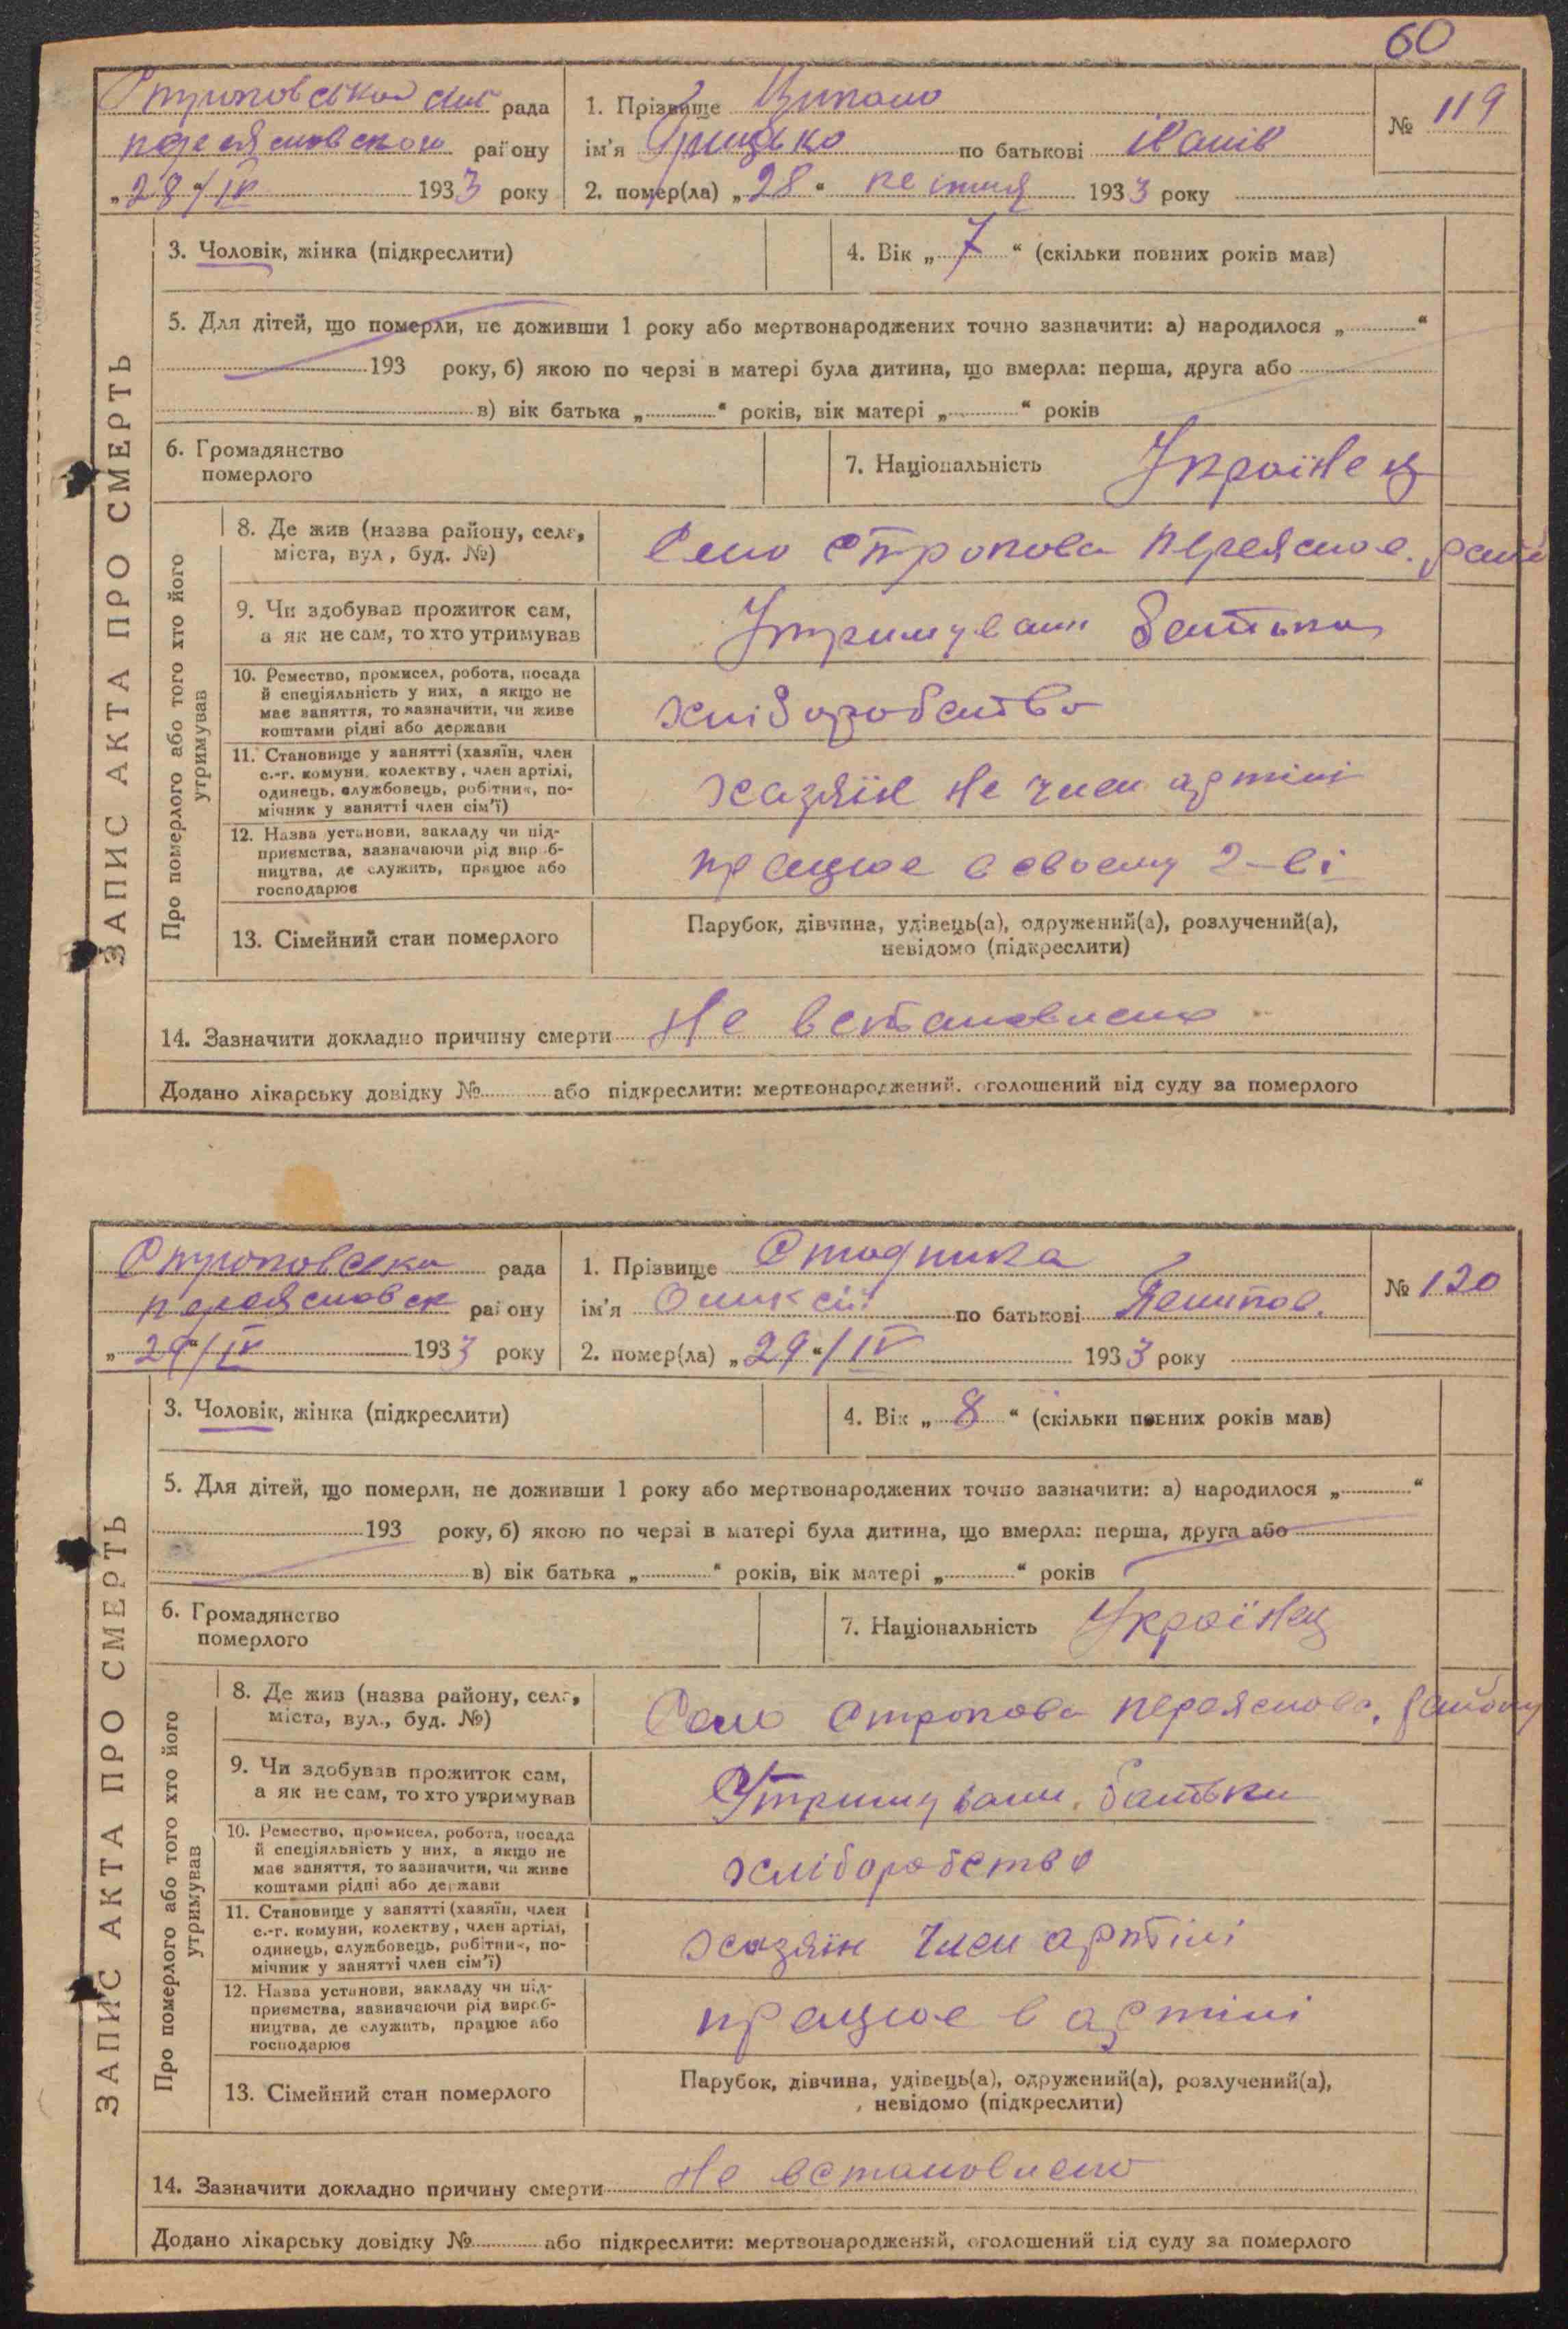 60
Строковська сіль рада
переяславськои району
„28“/IV 1933 року
1. Прізвище
ім'я Грицько по батькові Іванів
2. помер(ла) „28“ квітня 1933 року
№ 119
ЗАПИС АКТА ПРО СМЕРТЬ
3. Чоловік, жінка (підкреслити)
4. Вік „7“ (скільки повних років мав)
5. Для дітей, що померли, не доживши 1 року або мертвонароджених точно зазначити: а) народилося „ “
193 року, б) якою по черзі в матері була дитина, що вмерла: перша, друга або
в) вік батька „ “ років, вік матері „ “ років
6. Громадянство
померлого
7. Національність Українец
Про померлого або того хто його
утримував
8. Де жив (назва району, села,
міста, вул, буд. №)
Село Строкова Переяслов. райо
9. Чи здобував прожиток сам,
а як не сам, то хто утримував
Утримували батьки
10. Ремество, промисел, робота, посада
й спеціяльність у них, а якщо не
має заняття, то зазначити, чи живе
коштами рідні або держави
хліборобство
11. Становище у занятті (хазяїн, член
с.-г. комуни, колектву, член артілі,
одинець, службовець, робітник, по-
мічник у занятті член сім'ї)
хазяїн не член артілі
12. Назва установи, закладу чи під-
приємства, зазначаючи рід вироб-
ництва, де служить, працює або
господарює
працює в своєму г-ві
13. Сімейний стан померлого
Парубок, дівчина, удівець(а), одружений(а), розлучений(а),
невідомо (підкреслити)
14. Зазначити докладно причину смерти Не встановлено
Додано лікарську довідку № або підкреслити: мертвонароджений, оголошений від суду за померлого
Строковська рада
переяславськ району
„29“/IV 1933 року
1. Прізвище Стадника
ім'я Олексій по батькові Пилипов.
2. помер(ла) „29“/IV 1933 року
№ 120
ЗАПИС АКТА ПРО СМЕРТЬ
3. Чоловік, жінка (підкреслити)
4. Вік „8“ (скільки повних років мав)
5. Для дітей, що померли, не доживши 1 року або мертвонароджених точно зазначити: а) народилося „ “
193 року, б) якою по черзі в матері була дитина, що вмерла: перша, друга або
в) вік батька „ “ років, вік матері „ “ років
6. Громадянство
померлого
7. Національність Українец
Про померлого або того хто його
утримував
8. Де жив (назва району, села,
міста, вул., буд. №)
Село Строкова Переяслов. району
9. Чи здобував прожиток сам,
а як не сам, то хто утримував
Утримували батьки
10. Ремество, промисел, робота, посада
й спеціяльність у них, а якщо не
має заняття, то зазначити, чи живе
коштами рідні або держави
хліборобство
11. Становище у занятті (хазяїн, член
с.-г. комуни, колектву, член артілі,
одинець, службовець, робітник, по-
мічник у занятті член сім'ї)
хазяїн член артілі
12. Назва установи, закладу чи під-
приємства, зазначаючи рід вироб-
ництва, де служить, працює або
господарює
працює в артілі
13. Сімейний стан померлого
Парубок, дівчина, удівець(а), одружений(а), розлучений(а),
невідомо (підкреслити)
14. Зазначити докладно причину смерти Не встановлено
Додано лікарську довідку № або підкреслити: мертвонароджений, оголошений від суду за померлого